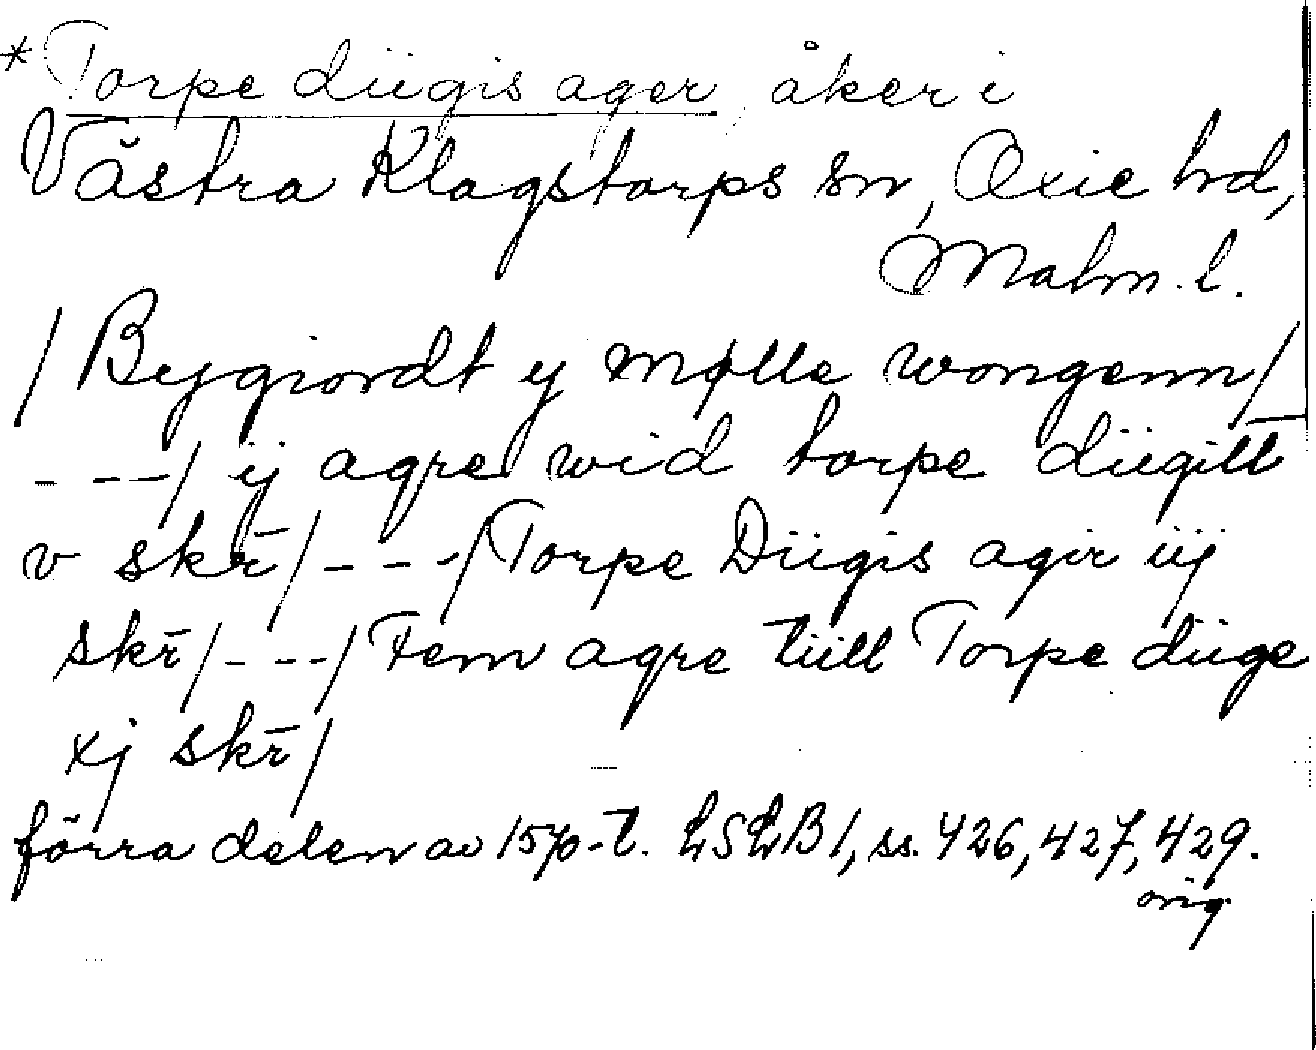 * Torpe diigis ager, åker i
Västra Klagstorps sn, Oxie hd,
Malm. l.
/ Bygiordt y mølle wongenn /
- - - / ij agre wid torpe diigitt
v skr̄ / - - - / Torpe Diigis agir iij
skr̄ / - - - / Fem agre tiill Torpe diige
xj skr̄ /
förra delen av 1570-t. LSLB 1, ss. 426, 427, 429.
orig.